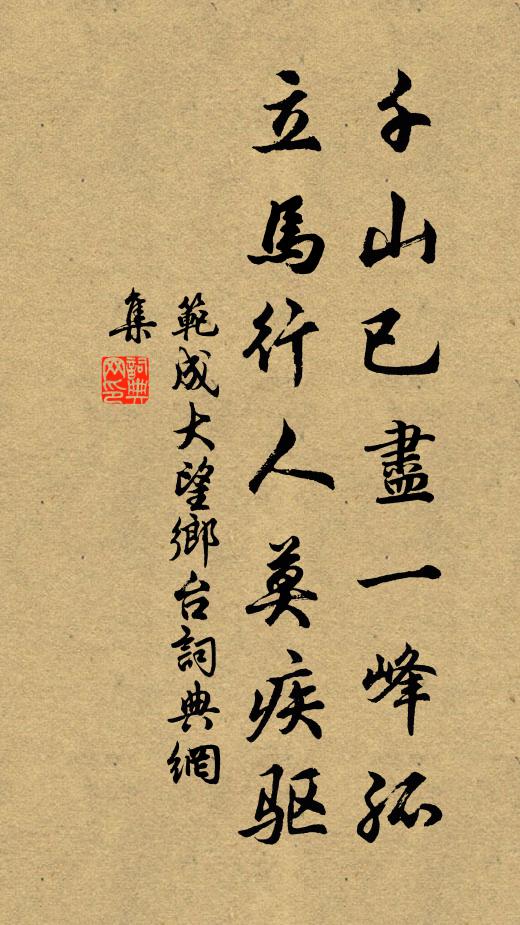 千山已盡一峰孤
立馬行人莫疾驱
範成大望鄉台詞典網
集
詞典
网印